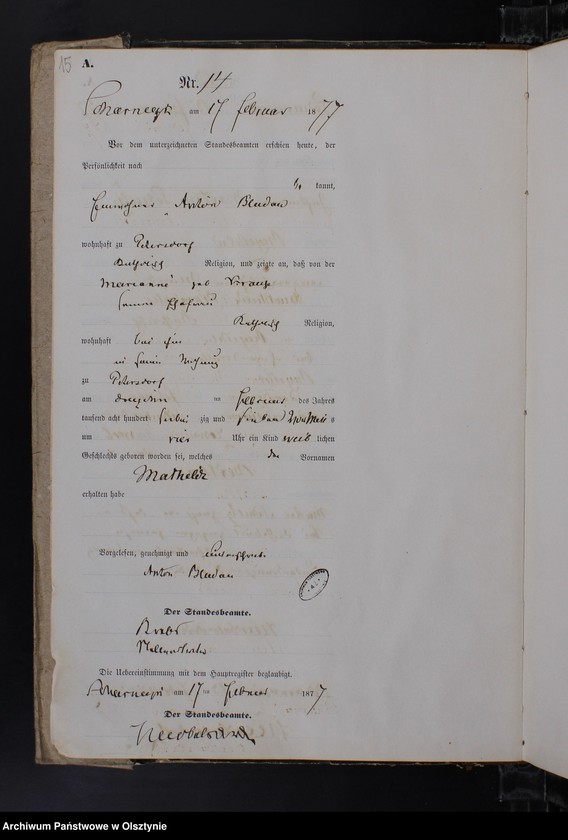 15
A.
Nr. 14
am 17 Februar 1877
Vor dem unterzeichneten Standesbeamten erschien heute, der
Persönlichkeit nach
kannt,
Anton Bludau
wohnhaft zu Petersdorf
Religion, und zeigte an, daß von der
Marianne geb
seiner Ehefrau
Religion,
wohnhaft bei ihm
in seiner Wohnung
zu Petersdorf
am dreizehn ten Februar des Jahres
tausend acht hundert sieben zig und sieben
um vier Uhr ein Kind weib lichen
Geschlechts geboren worden sei, welches den Vornamen
Mathilde
erhalten habe
Vorgelesen, genehmigt und unterschrieben
Anton Bludau
Der Standesbeamte.
Die Uebereinstimmung mit dem Hauptregister beglaubigt.
am 17 ten Februar 1877
Der Standesbeamte.
Archiwum Państwowe w Olsztynie